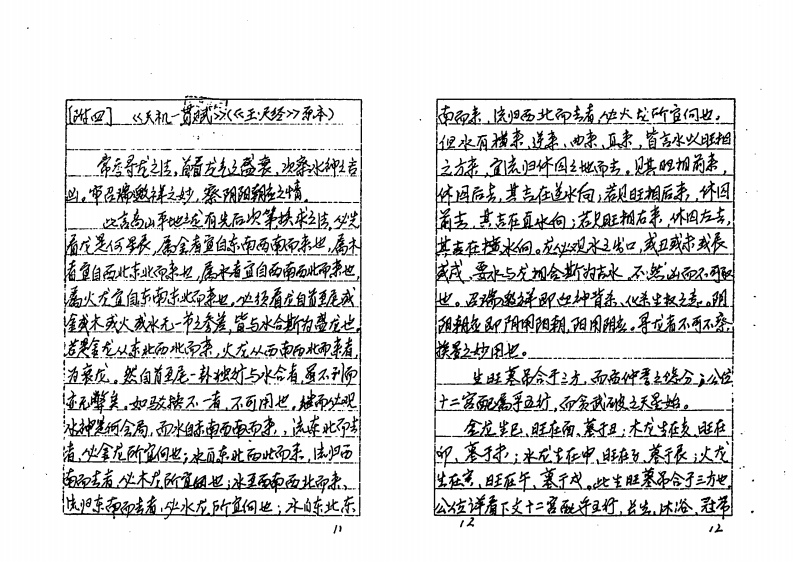 [附四] 《天机一贯赋》(《玉尺经》原本)
常知寻龙之法，首看龙气之盛衰，次察水神之吉
凶。牢召瑞毁祥之妙，察阴阳朝之情。
此言高山平地之龙有先后次第换求之法，必先
看龙是何星辰，属金者宜自东南西南而来也，属木
者宜自西北东北而来也，属水者宜自西南西北而来也，
属火龙宜自东南东北而来也，必须看龙自首至尾或
金或木或火或水无一节之参差，皆与水合斯为盛龙也。
若是金龙从东北西北而来，火龙从西南西北而来者，
为衰龙。然自首至尾一卦独行与水合者，虽不利而
亦无弊矣。如驳杂不一者，不可用也。继而必观
水神是何会局，而水自东南西南而来，流东北而去
者，必金龙所宜向也；水自东北西北而来，流归西
南而去者，必木龙所宜向也；水至西南西北而来，
流归东南而去者，必水龙所宜向也；水自东北东
11
南而来，流归西北而去者，必火龙所宜向也。
但水有横来、逆来、曲来、直来，皆言水以旺相
之方来，宜流归休囚之地而去。见其旺相前来，
休囚后去，其吉在逆水向；若见旺相后来，休囚
前去，其吉在直水向；若见旺相右来，休囚左去，
其吉在横水向。龙必观水之出口，或丑或未或辰
或戌，要水与龙相合斯为吉水。不然凶而不可取
也。召瑞毁祥即此种背系，化来生杀之意。阴
阳朝在即阴用阳朝，阳用阴应。寻龙者不可不察
换星之妙用也。
生旺墓吊合于三方，而两仲寻之媒合；公位
十二宫配属乎五行，而贪武破之天星始。
金龙生巳，旺在酉，墓于丑；木龙生在亥，旺在
卯，墓于未；水龙生在申，旺在子，墓于辰；火龙
生在寅，旺在午，墓于戌。此生旺墓吊合于三方也。
公位详看下文十二宫配乎五行，长生，沐浴，冠带
12
12